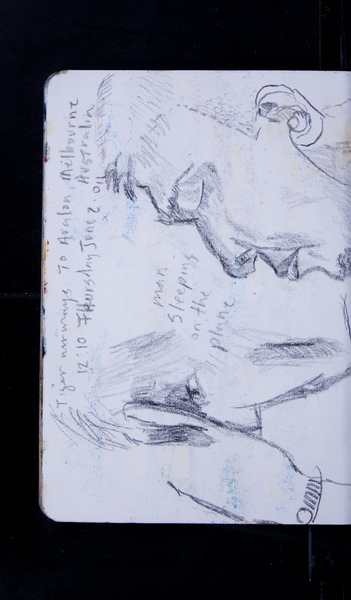 Tiger airways TO Avalon, Melbourne
Australia
12:10 Thursday June 2.011
man
Sleeping
on the
plane